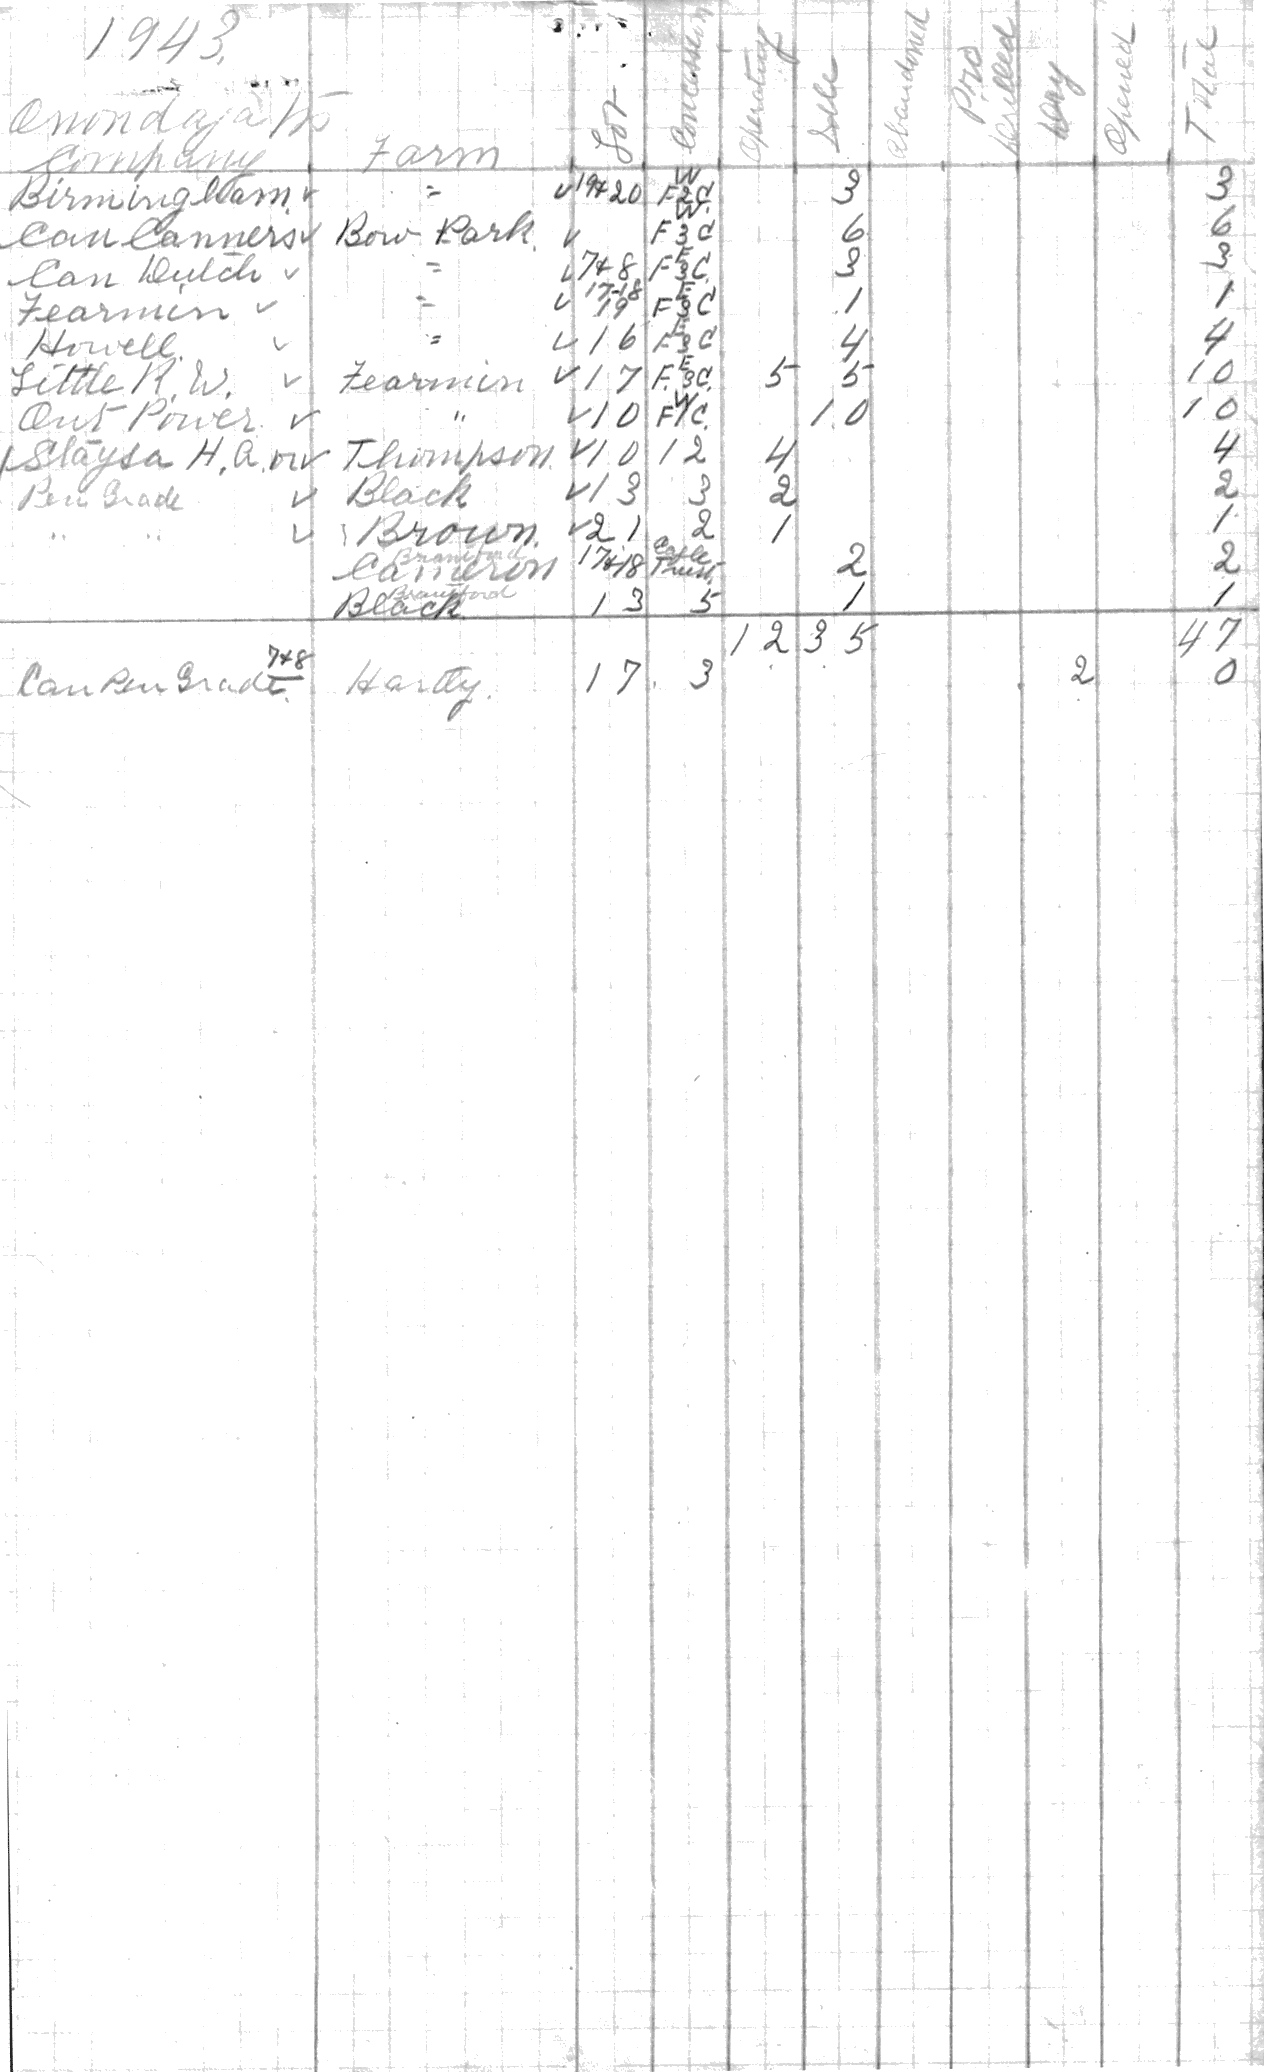 1943.
Onondaga Tp
Company Farm Lot Concession Operating Idle Abandoned Pro Drilled Dry Opened Total
Birmingham ✓ = ✓ 19+20 W F2C 3 3
Can Canners ✓ Bow Park ✓ W. F3C 6 6
Can Dutch ✓ = ✓ 7+8 E F3C 3 3
Fearmin ✓ = ✓ 17-18 19 E F3C 1 1
Howell ✓ = ✓ 16 E F3C 4 4
Little R. W. ✓ Fearmin ✓ 17 E F.3C. 5 5 10
Ont Power ✓ " ✓ 10 W F1C. 10 10
Slaysa H. A. ✓ Thompson ✓ 10 12 4 4
Pen Grade ✓ Black ✓ 13 3 2 2
" " ✓ Brown. ✓ 21 2 1 1
Brantford Cameron 17+18 2 2
Brantford Black 13 5 1 1
12 35 47
Can Pen Grade 7+8 Hartly. 17 3 2 0